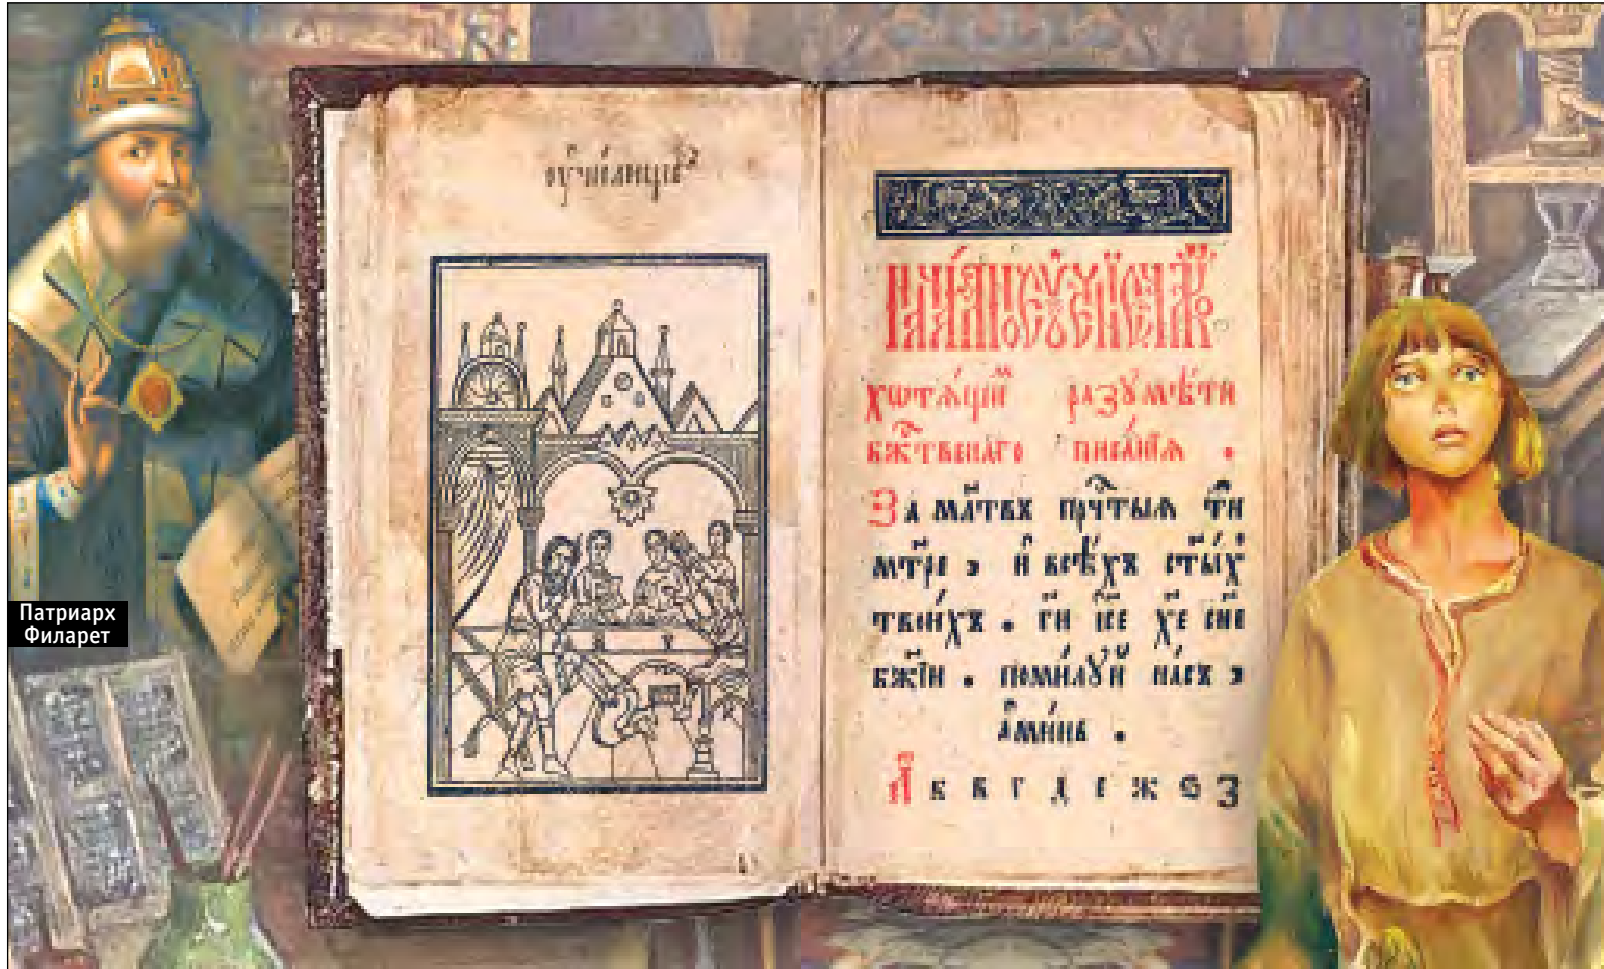 Патриарх
Филарет
ѹчи́лищеэ
хотѧ́щимъ разꙋмѣ́ти
бж҃твенаго писа́нїѧ .
За мл҃твъ прⷱ҇тыѧ тѝ
мт҃ре , и҆ всѣ́хъ ст҃ы́хъ
твои́хъ . гд҃и і҆с҃е хр҃е сн҃е
бж҃їи . поми́лꙋй на́съ ,
а҆ми́нь .
А б в г д е ж ѕ з